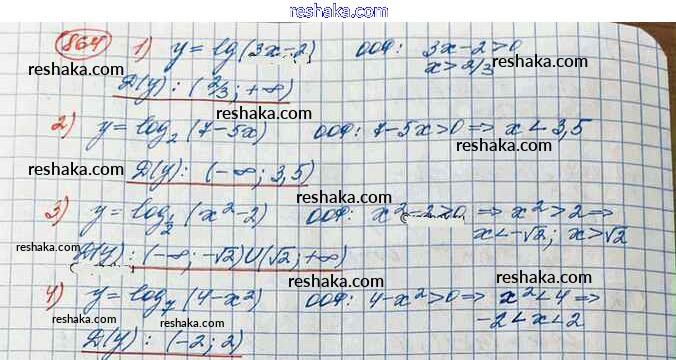 www.reshaka.com
864 1) y = lg(3x-2) ООФ: 3x-2>0
reshaka.com x > 2/3 reshaka.com
D(y): (2/3; +∞)
reshaka.com
2) y = log₂(7-5x) ООФ: 7-5x>0 => x < 3,5
reshaka.com reshaka.com
D(y): (-∞; 3,5)
reshaka.com
3) y = log½(x²-2) ООФ: x²-2>0 => x²>2 =>
reshaka.com x<-√2; x>√2
D(y): (-∞; -√2)∪(√2; +∞) reshaka.com
reshaka.com
4) y = log₇(4-x²) ООФ: 4-x²>0 => x²<4 =>
reshaka.com reshaka.com -2<x<2
D(y): (-2; 2) reshaka.com